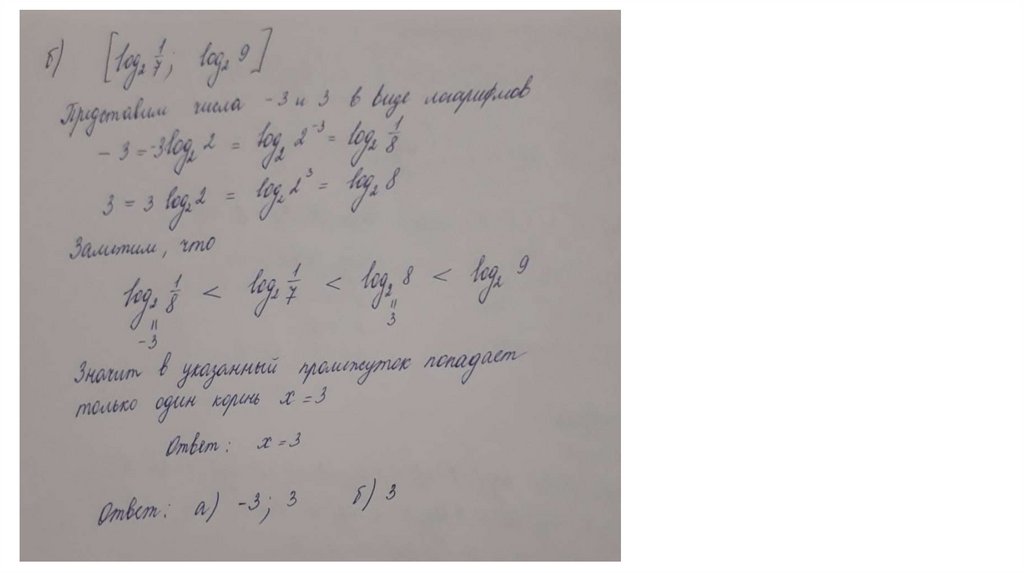 б) [log₂ 1/7; log₂ 9]
Представим числа -3 и 3 в виде логарифмов
- 3 = -3log₂ 2 = log₂ 2⁻³ = log₂ 1/8
3 = 3 log₂ 2 = log₂ 2³ = log₂ 8
Заметим, что
log₂ 1/8 < log₂ 1/7 < log₂ 8 < log₂ 9
= =
-3 3
Значит в указанный промежуток попадает
только один корень x = 3
Ответ: x = 3
Ответ: а) -3; 3 б) 3